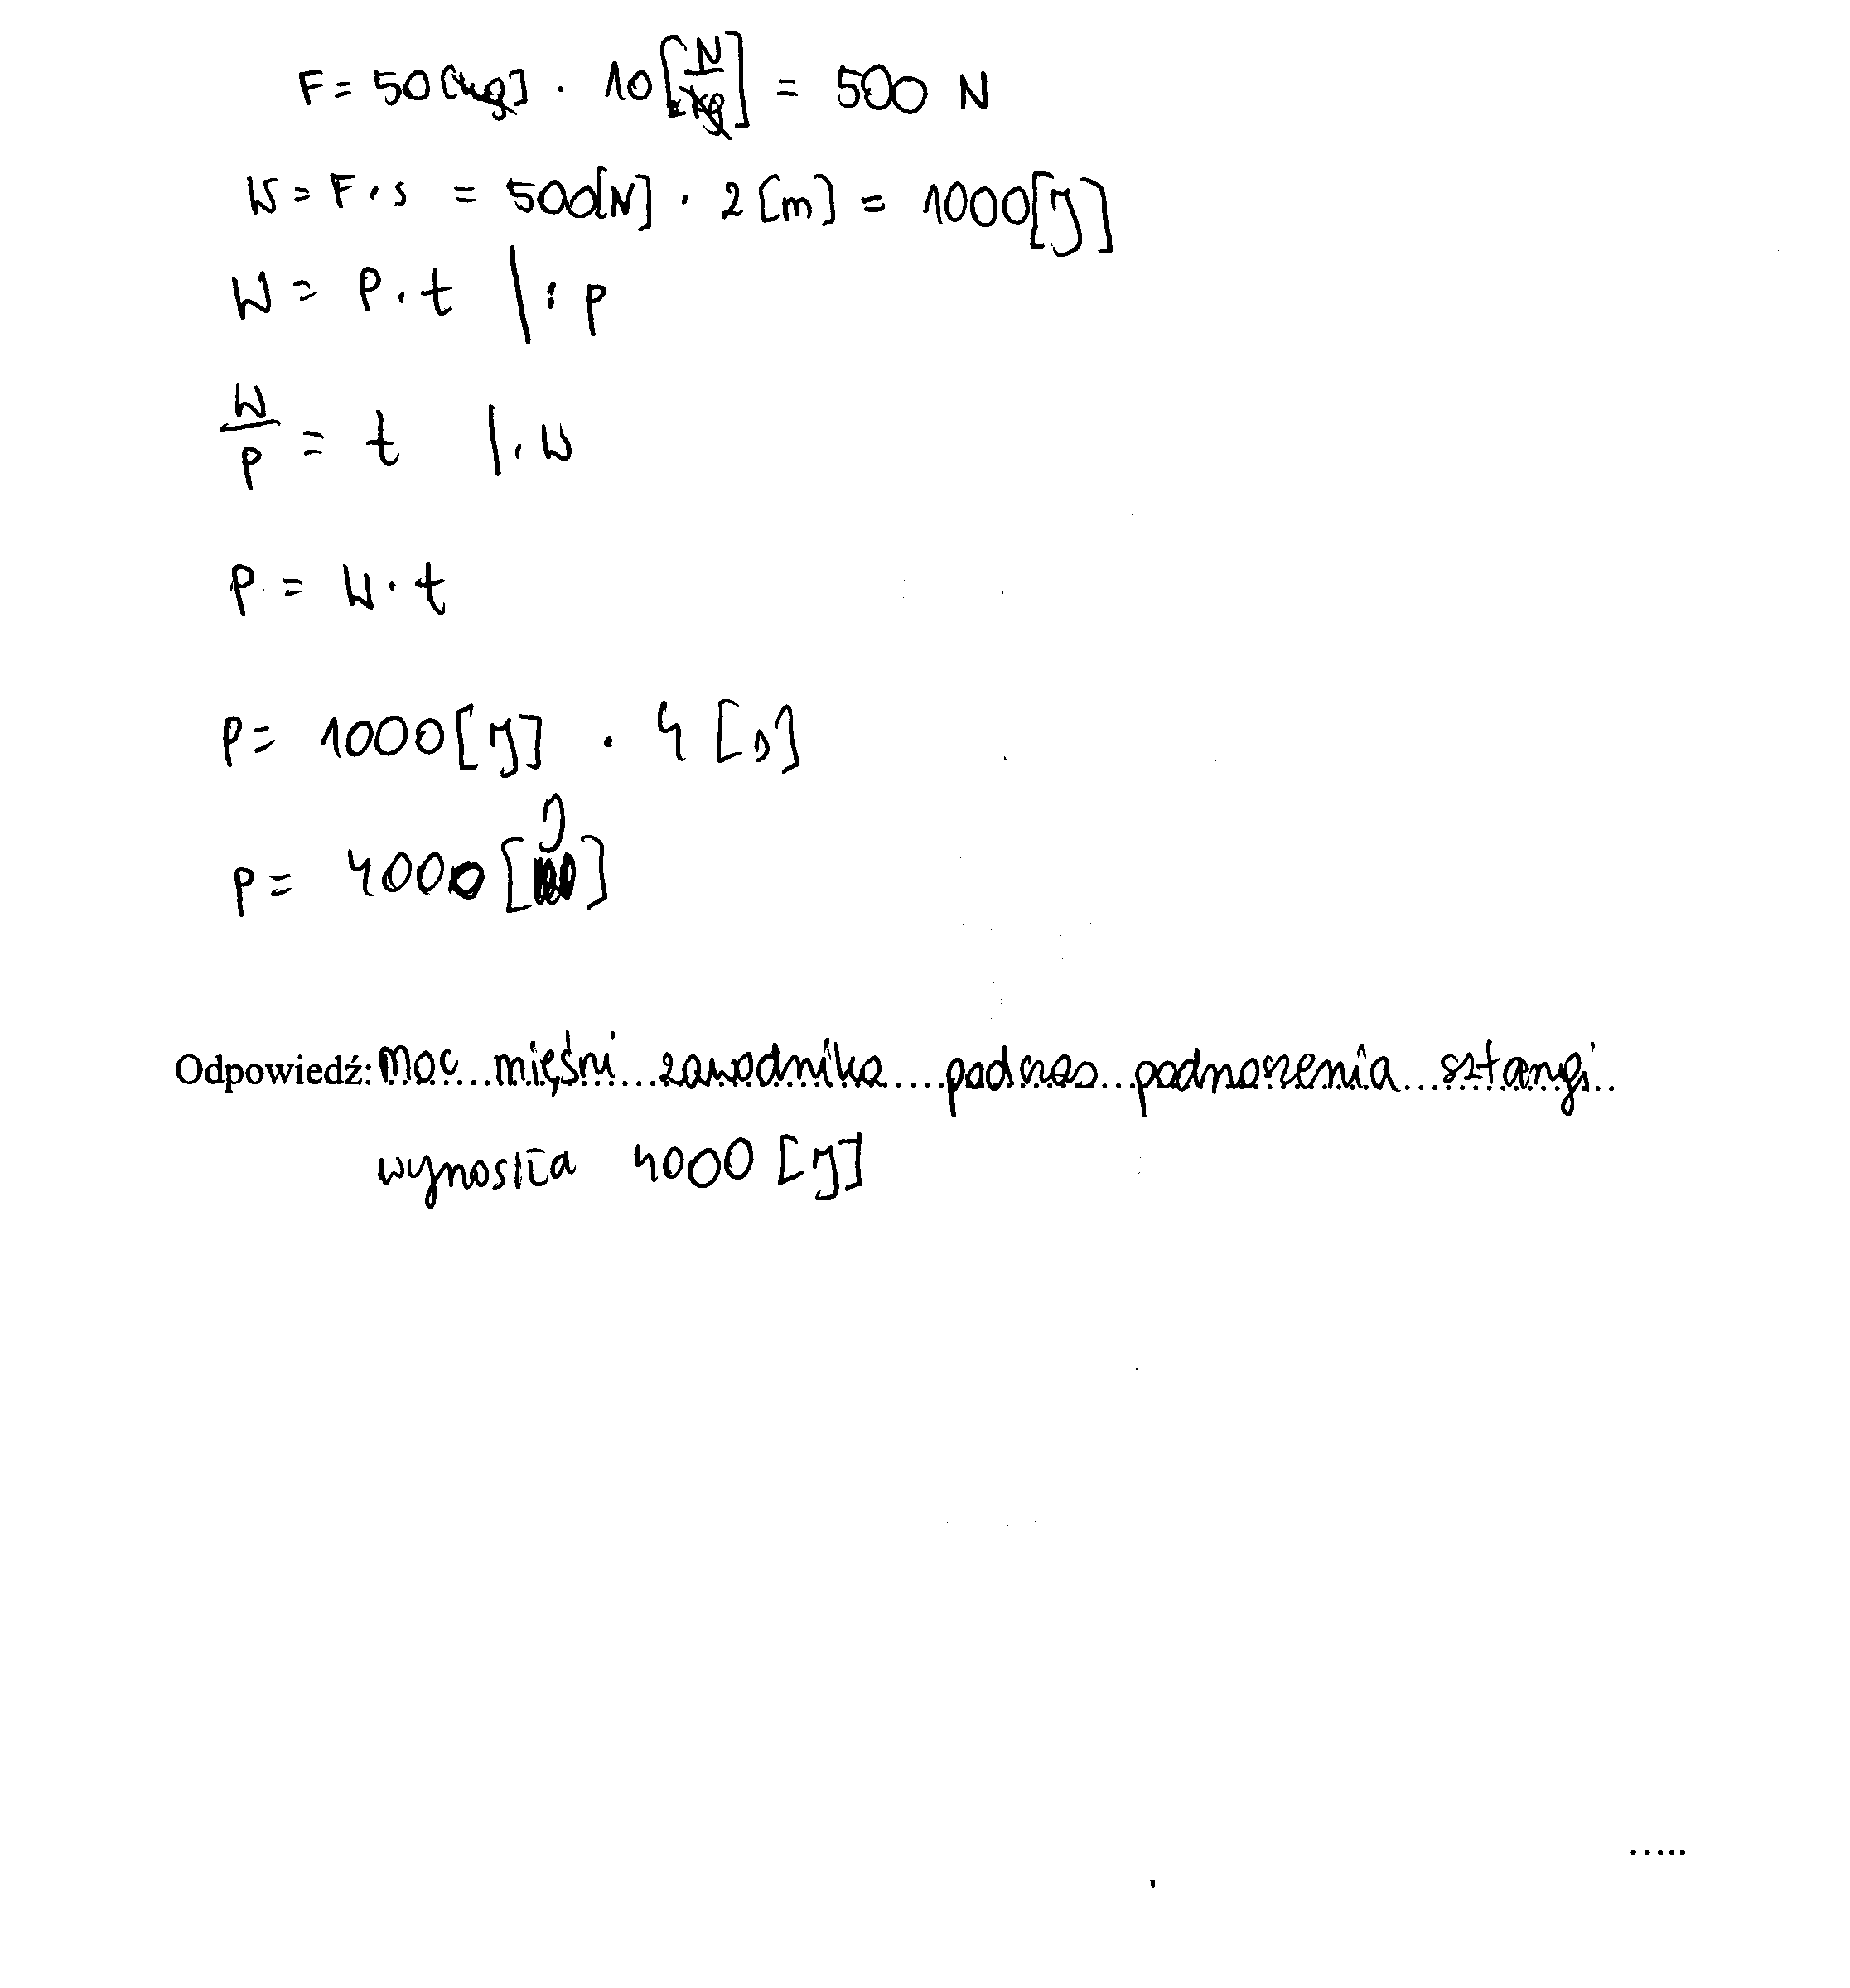 F = 50 [kg] · 10 [N/kg] = 500 N
W = F · s = 500[N] · 2 [m] = 1000[J]
W = P · t | : P
W/P = t | · W
P = W · t
P = 1000 [J] · 4 [s]
P = 4000 [J]
Odpowiedź: Moc mięśni zawodnika podczas podnoszenia sztangi
wynosiła 4000 [J]
.....